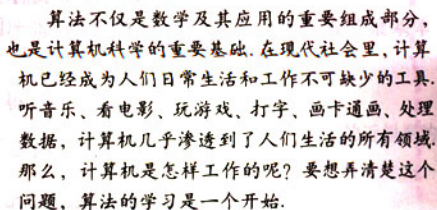 算法不仅是数学及其应用的重要组成部分,
也是计算机科学的重要基础.在现代社会里,计算
机已经成为人们日常生活和工作不可缺少的工具.
听音乐、看电影、玩游戏、打字、画卡通画、处理
数据,计算机几乎渗透到了人们生活的所有领域.
那么,计算机是怎样工作的呢?要想弄清楚这个
问题,算法的学习是一个开始.